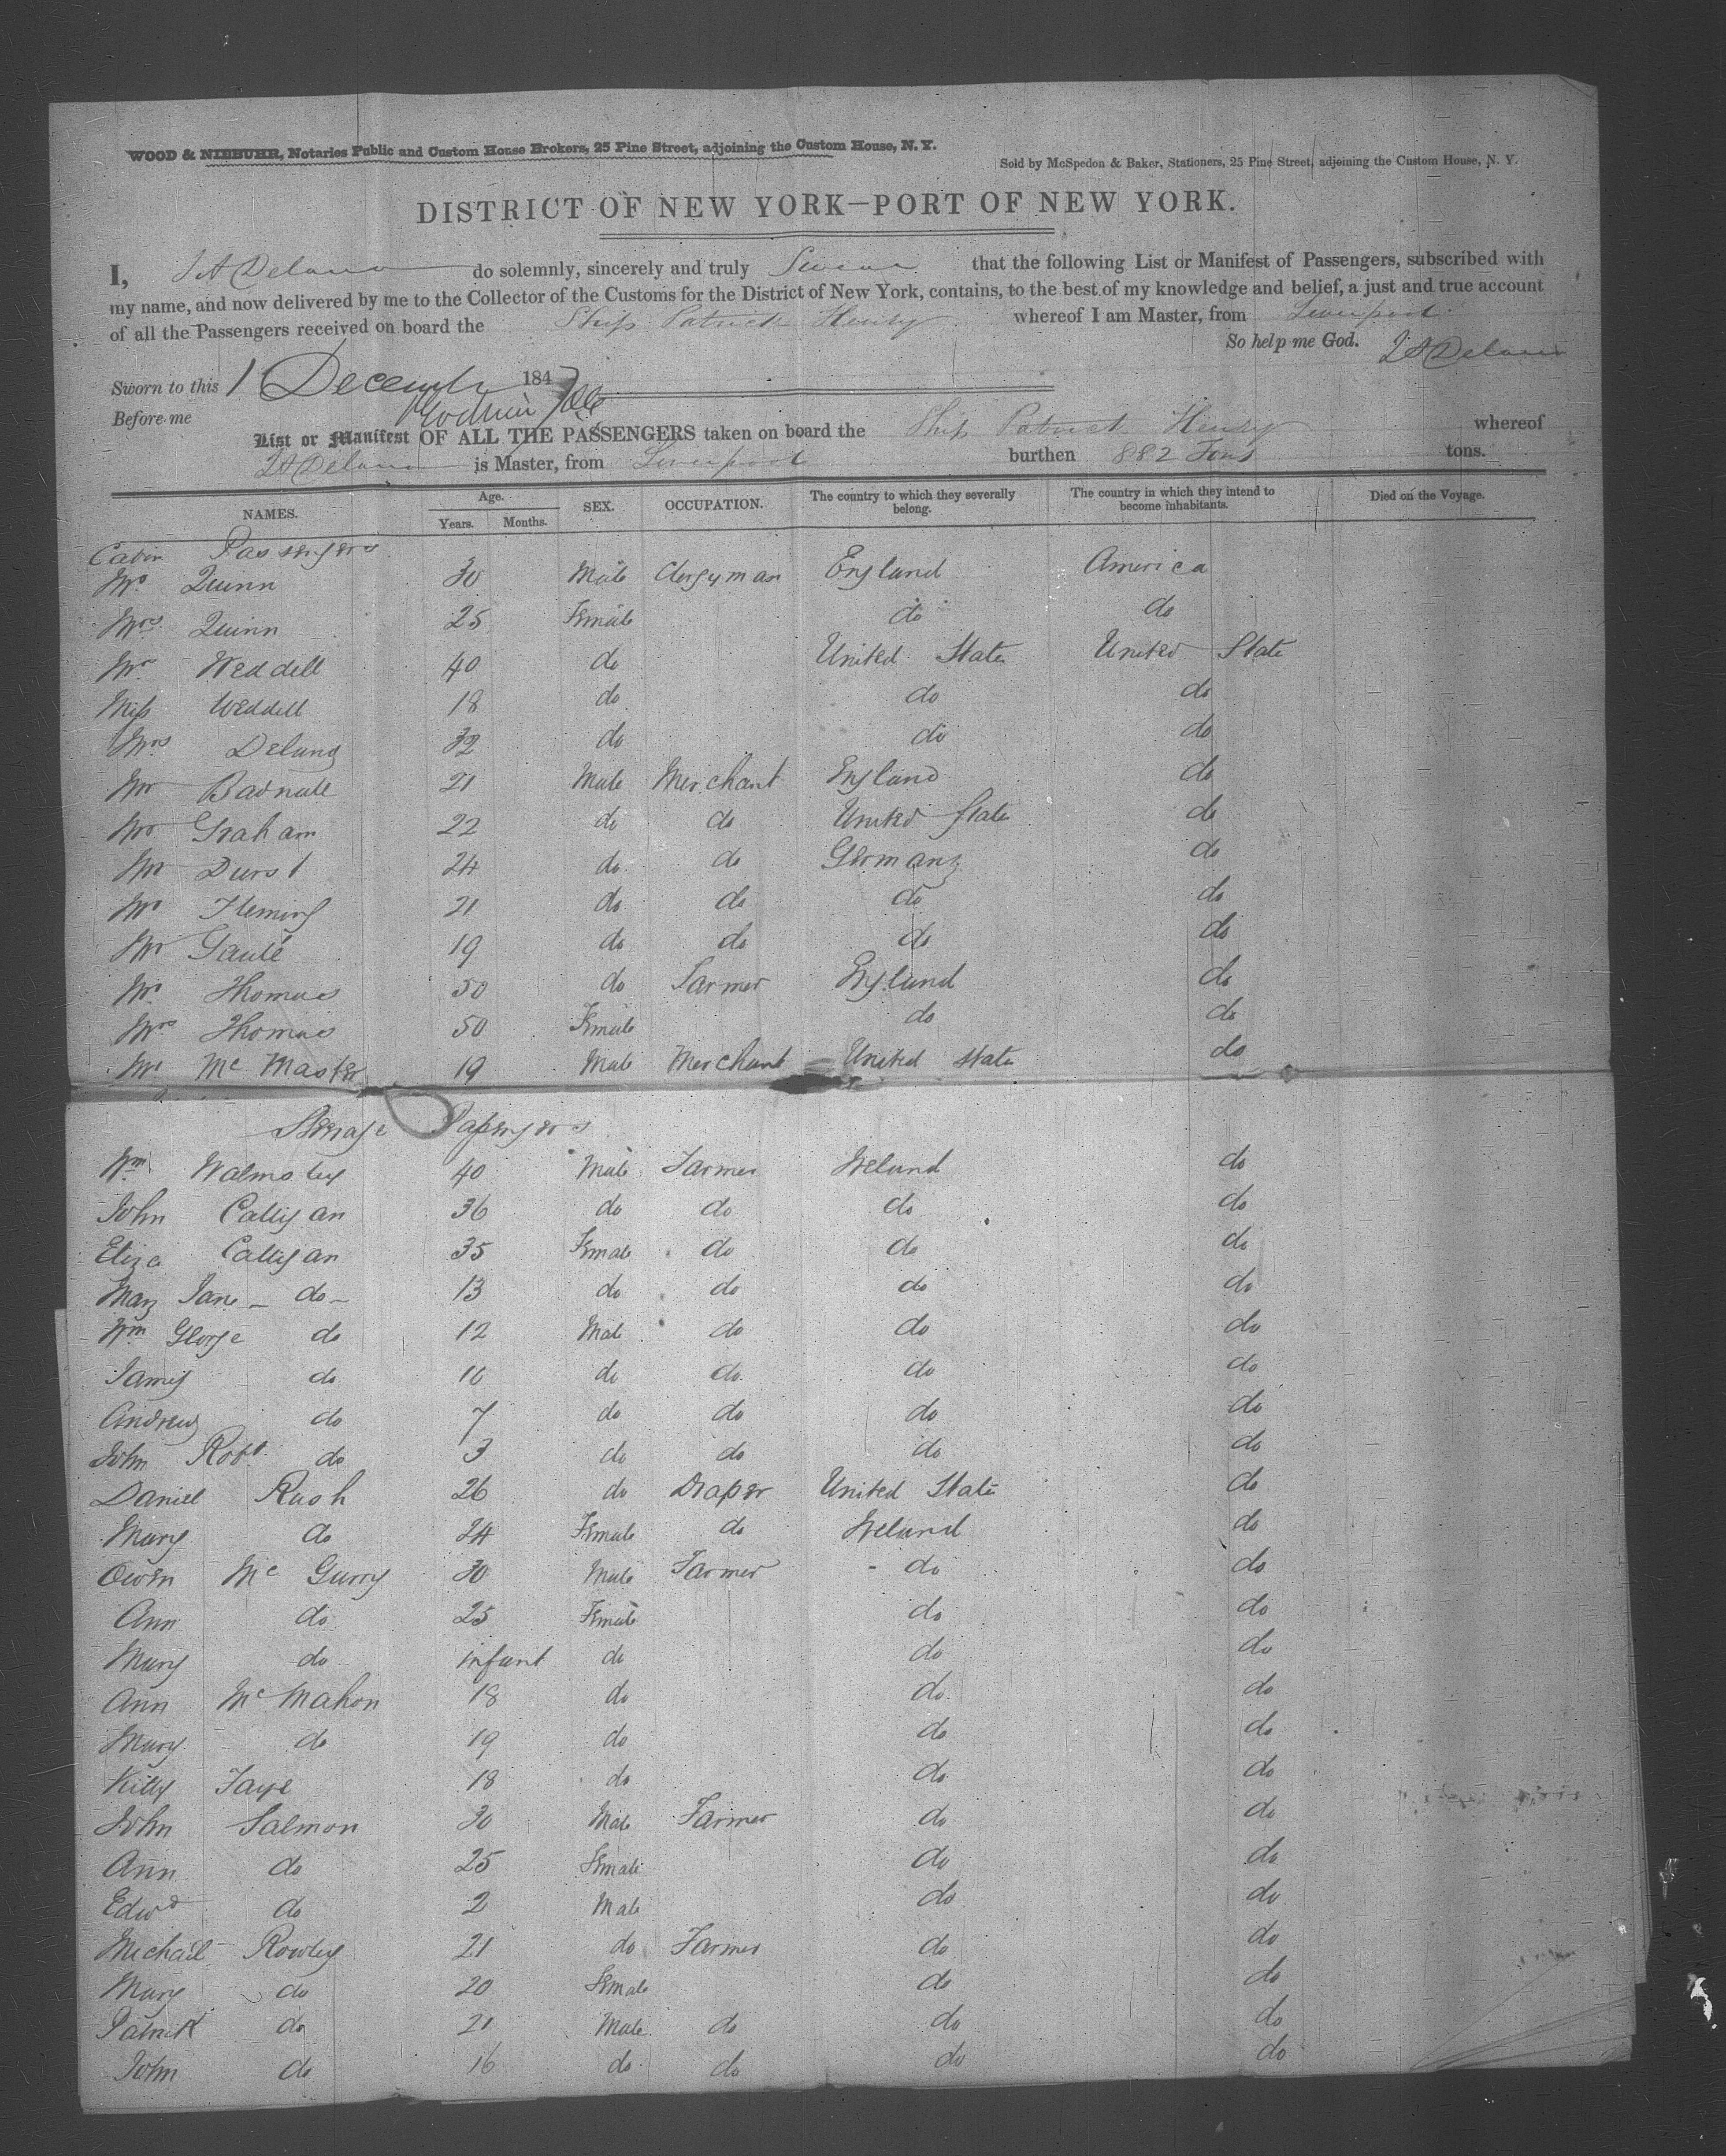 WOOD & NIEBUHR, Notaries Public and Custom House Brokers, 25 Pine Street, adjoining the Custom House, N. Y.
Sold by McSpedon & Baker, Stationers, 25 Pine Street, adjoining the Custom House, N. Y.
DISTRICT OF NEW YORK—PORT OF NEW YORK.
I, J A Delano do solemnly, sincerely and truly Swear that the following List or Manifest of Passengers, subscribed with
my name, and now delivered by me to the Collector of the Customs for the District of New York, contains, to the best of my knowledge and belief, a just and true account
of all the Passengers received on board the Ship Patrick Henry whereof I am Master, from Liverpool.
So help me God. J A Delano
Sworn to this 1 December 1847
Before me
List or Manifest OF ALL THE PASSENGERS taken on board the Ship Patrick Henry whereof
J A Delano is Master, from Liverpool burthen 882 Tons tons.
NAMES. Age. Years. Months. SEX. OCCUPATION. The country to which they severally belong. The country in which they intend to become inhabitants. Died on the Voyage.
Cabin Passengers
Mr Quinn 30 Male Clergyman England America
Mrs Quinn 25 Female do do
Mrs Weddell 40 do United State United State
Miss Weddell 18 do do do
Mrs Delano 32 do do do
Mr Badnall 21 Male Merchant England do
Mr Graham 22 do do United State do
Mr Durst 24 do do Germany do
Mr Fleming 21 do do do do
Mr Gaulé 19 do do do do
Mr Thomas 50 do Farmer England do
Mrs Thomas 50 Female do do
Mr Mc Master 19 Male Merchant United State do
Steerage Passengers
Wm Walmsley 40 Male Farmer Ireland do
John Calligan 36 do do do do
Eliza Calligan 35 Female do do do
Mary Jane - do - 13 do do do do
Wm George do 12 Male do do do
James do 10 do do do do
Andrew do 7 do do do do
John Robt do 3 do do do do
Daniel Rush 26 do Draper United State do
Mary do 24 Female do Ireland do
Owen Mc Gurry 30 Male Farmer do do
Ann do 25 Female do do
Mary do infant do do do
Ann Mc Mahon 18 do do do
Mary do 19 do do do
Kitty Faye 18 do do do
John Salmon 30 Male Farmer do do
Ann do 25 Female do do
Edwd do 2 Male do do
Michael Rowley 21 do Farmer do do
Mary do 20 Female do do
Patrick do 21 Male do do do
John do 16 do do do do